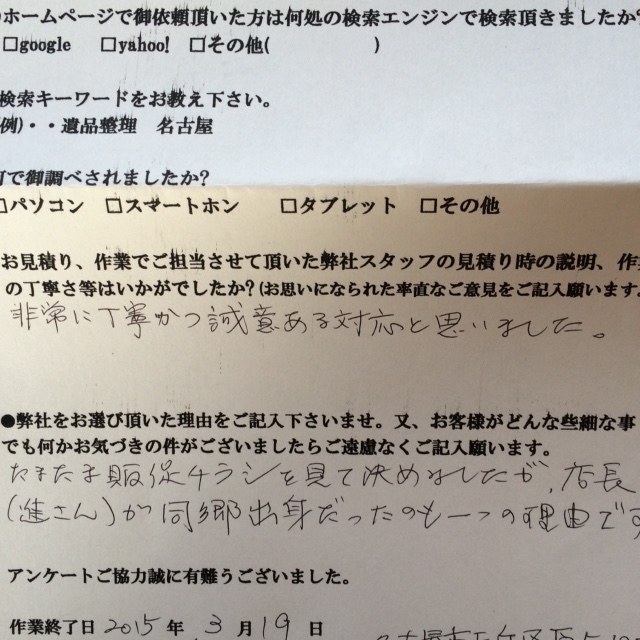 ホームページで御依頼頂いた方は何処の検索エンジンで検索頂きましたか?
□google □yahoo! □その他( )
検索キーワードをお教え下さい。
例)・・遺品整理 名古屋
で御調べされましたか?
□パソコン □スマートホン □タブレット □その他
お見積り、作業でご担当させて頂いた弊社スタッフの見積り時の説明、作
の丁寧さ等はいかがでしたか?(お思いになられた率直なご意見をご記入願います。
非常に丁寧かつ誠意ある対応と思いました。
●弊社をお選び頂いた理由をご記入下さいませ。又、お客様がどんな些細な事
でも何かお気づきの件がございましたらご遠慮なくご記入願います。
たまたま販促チラシを見て決めましたが、店長
(進さん)が同郷出身だったのも一つの理由です
アンケートご協力誠に有難うございました。
作業終了日 2015 年 3 月 19 日